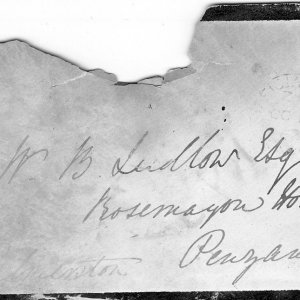 W B Ludlow Esq
Rosemayon Ho
Penzan